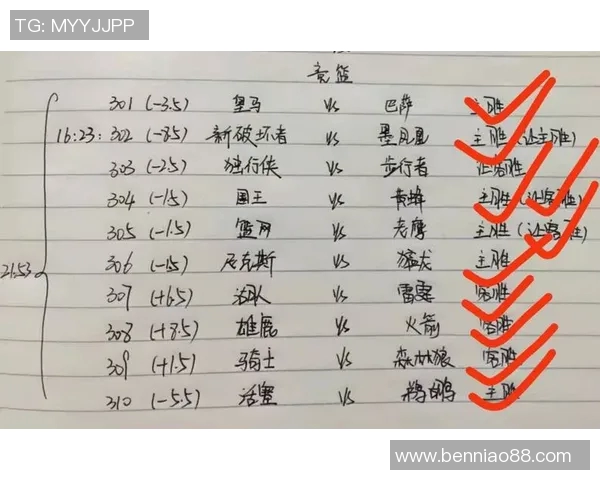 TG: MYYJJPP
竞篮
301 (-3.5) 皇马 VS 巴萨 主胜
16:23: 302 (-8.5) 新破坏者 VS 墨凤凰 主胜(让主胜)
303 (-2.5) 独行侠 VS 步行者 让客胜
304 (-1.5) 国王 VS 黄蜂 主胜(让客胜)
305 (-1.5) 篮网 VS 老鹰 主胜(让客胜)
21:53 306 (-1.5) 尼克斯 VS 猛龙 主胜
307 (+6.5) VS 雷霆 客胜
308 (+8.5) 雄鹿 VS 火箭 客胜
309 (+1.5) 骑士 VS 森林狼 客胜
310 (-5.5) 活塞 VS 鹈鹕 主胜
www.benniao88.com